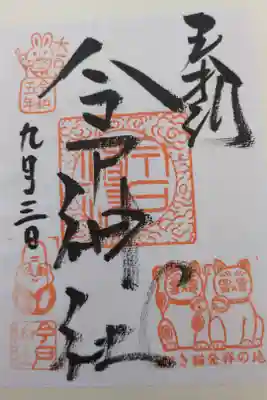 奉拝
今戸神社
令和
五年
九月三日
今戸
招き猫発祥の地